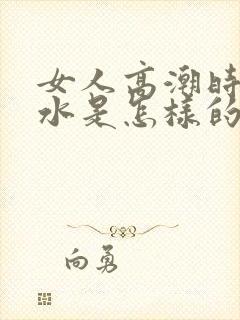 女人高潮时
水是怎样的
向勇